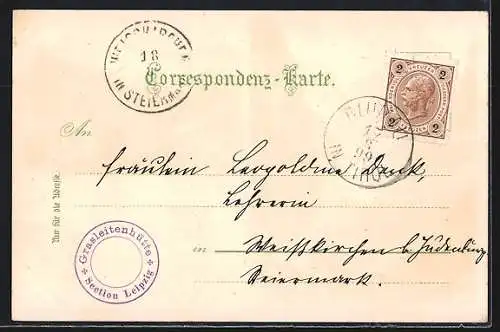 WEISSKIRCHEN
18
IN STEIERMARK
Correspondenz-Karte.
2 KREUZER 2
2 2
BLUMAU
99
IN TIROL
An
Fräulein Leopoldine Denk,
Lehrerin
in Weißkirchen b. Judenburg
Steiermark.
Nur für die Adresse.
Grasleitenhütte
* Section Leipzig *